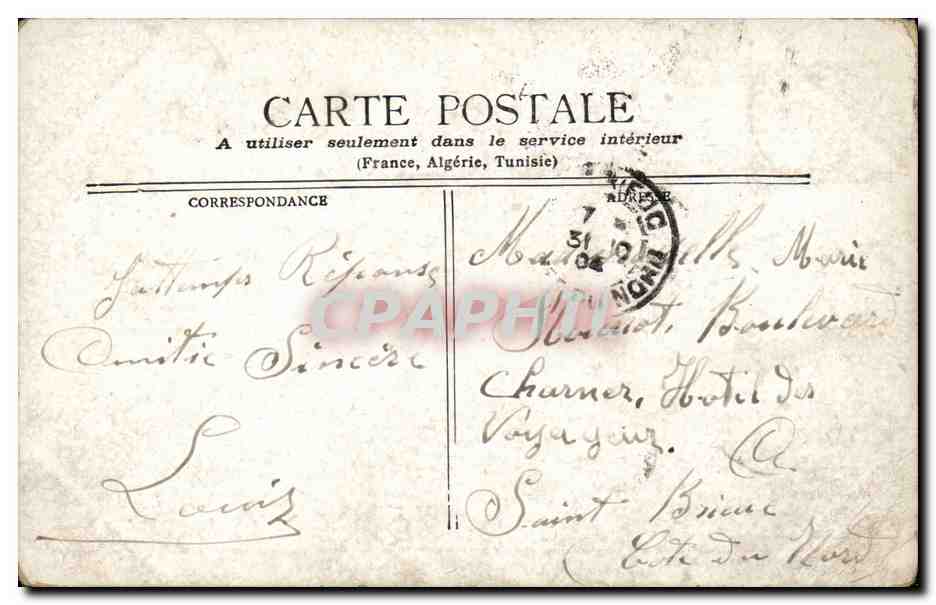 CARTE POSTALE
A utiliser seulement dans le service intérieur
(France, Algérie, Tunisie)
CORRESPONDANCE
ADRESSE
J'attemps Réponse
Amitie Sincère
Louis
Mademoiselle Marie
Boulevard
Charner, Hotel des
Voyageur.
A
Saint Brieuc
Cote du Nord
7
31 10
04
CPAPHIL